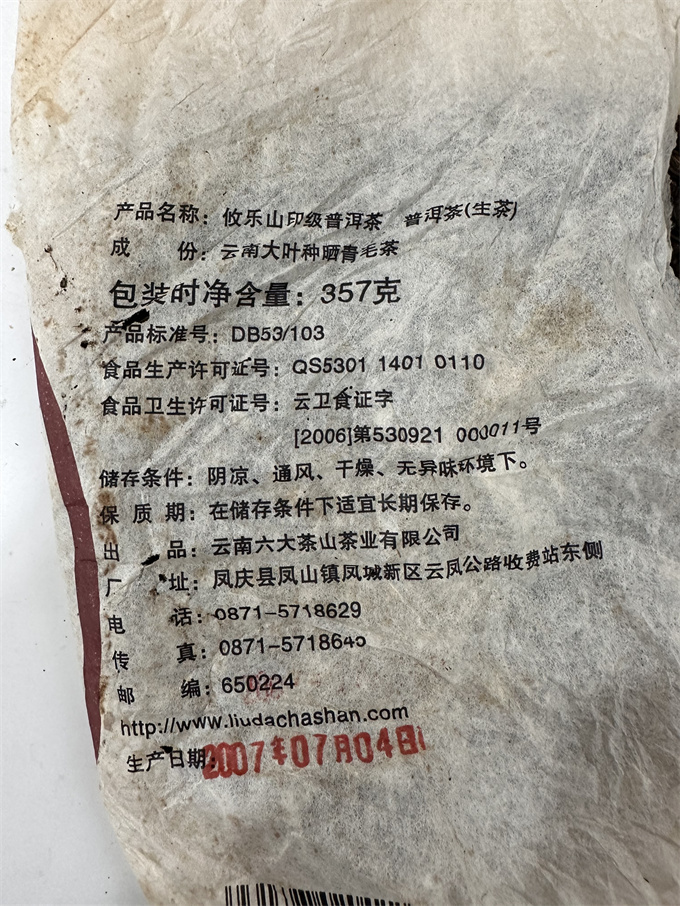 产品名称：攸乐山印级普洱茶 普洱茶(生茶)
成 份：云南大叶种晒青毛茶
包装时净含量：357克
产品标准号：DB53/103
食品生产许可证号：QS5301 1401 0110
食品卫生许可证号：云卫食证字
[2006]第530921 000011号
储存条件：阴凉、通风、干燥、无异味环境下。
保 质 期：在储存条件下适宜长期保存。
出 品：云南六大茶山茶业有限公司
厂 址：凤庆县凤山镇凤城新区云凤公路收费站东侧
电 话：0871-5718629
传 真：0871-5718645
邮 编：650224
http://www.liudachashan.com
生产日期：2007年07月04日